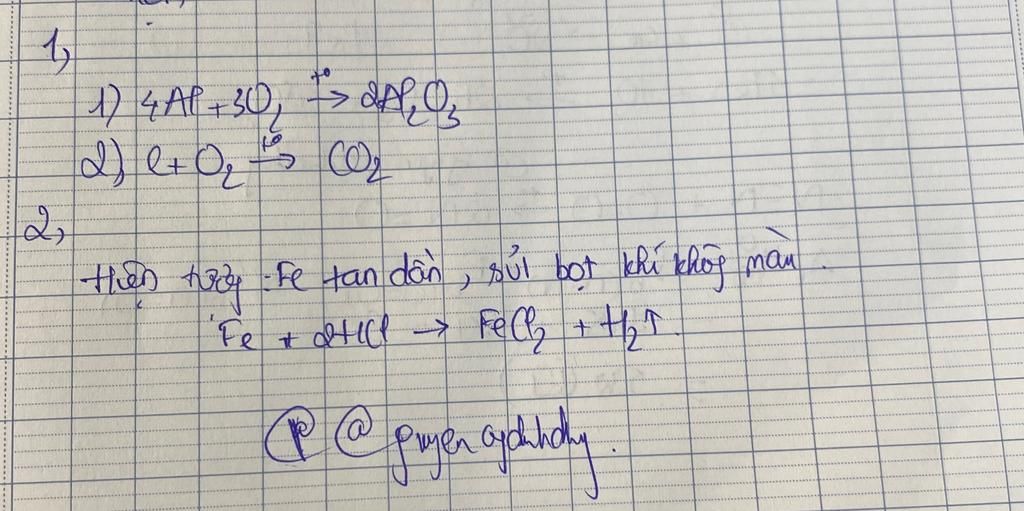 1,
1) 4Al + 3O₂ t° → 2Al₂O₃
2) C + O₂ t° → CO₂
2,
Hiện tượng : Fe tan dần, sủi bọt khí không màu.
Fe + 2HCl → FeCl₂ + H₂↑.